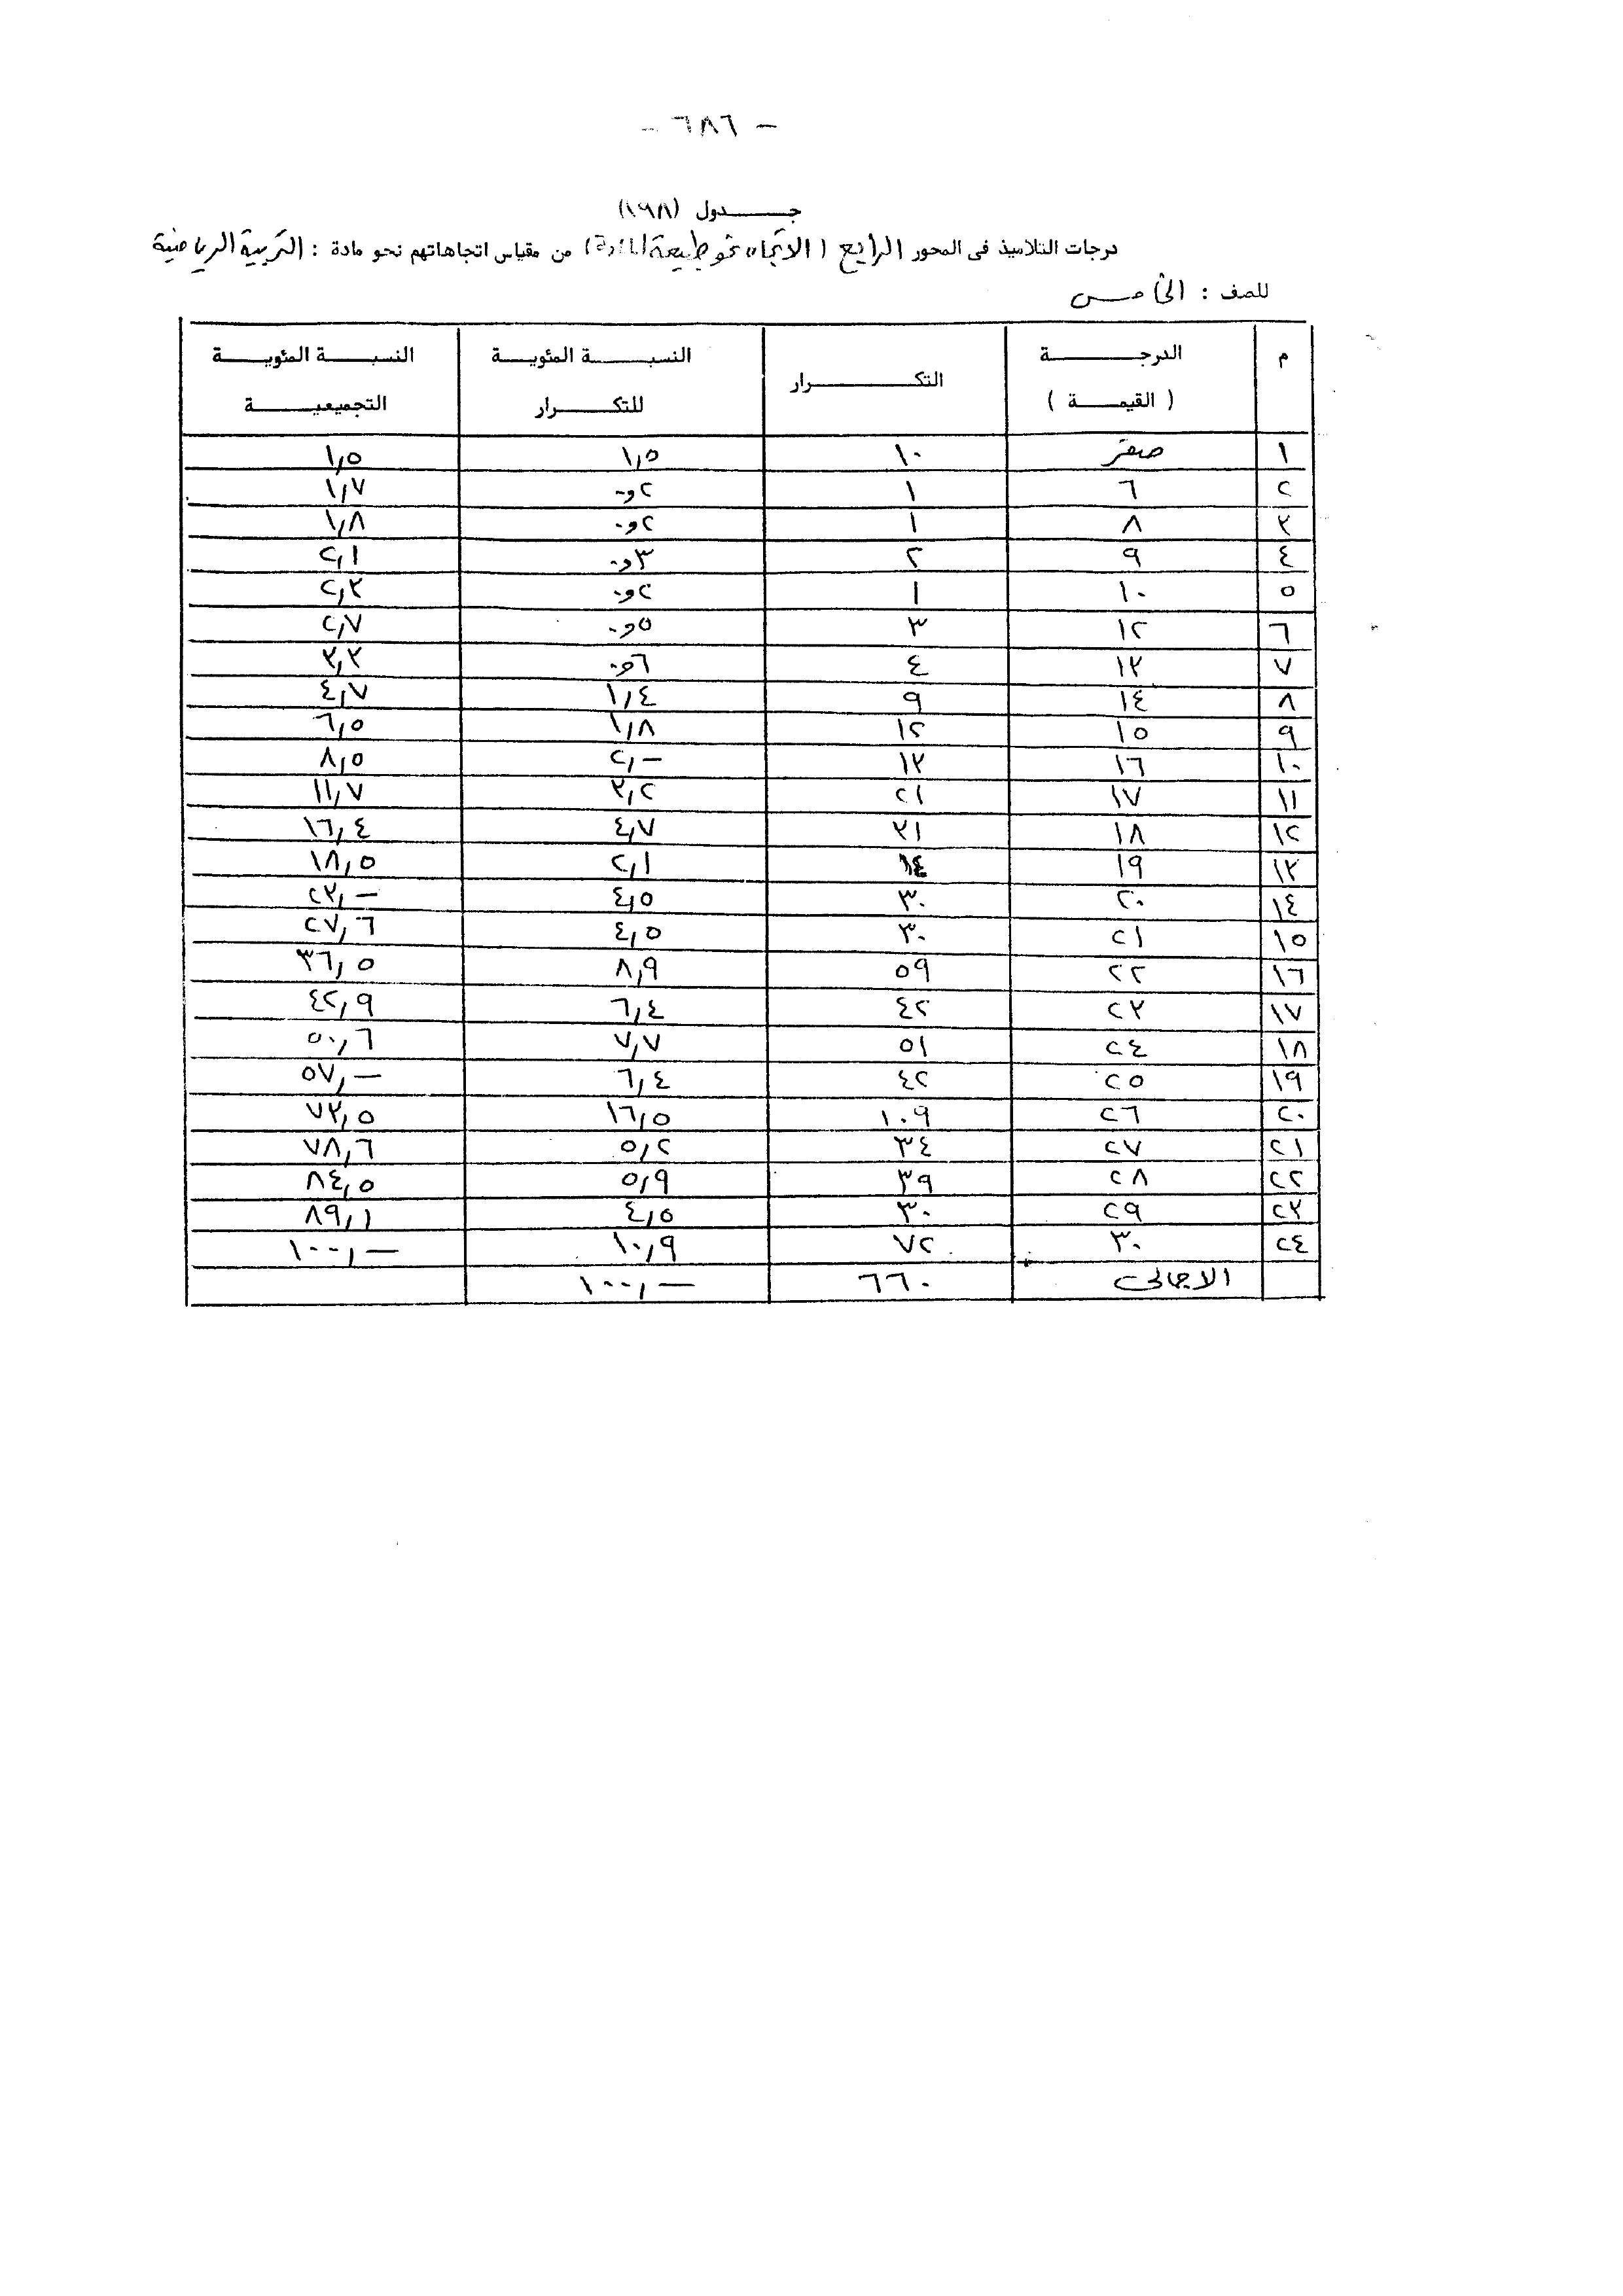 - ٦٨٦ -
جدول (١٩٨)
درجات التلاميذ فى المحور الرابع (الاتجاه نحو طبيعة المادة) من مقياس اتجاهاتهم نحو مادة : التربية الرياضية
للصف : الخامس
م الدرجة (القيمة) التكرار النسبة المئوية للتكرار النسبة المئوية التجميعية
١ صفر ١٠ ١,٥ ١,٥
٢ ٦ ١ ٠,٢ ١,٧
٣ ٨ ١ ٠,٢ ١,٨
٤ ٩ ٢ ٠,٣ ٢,١
٥ ١٠ ١ ٠,٢ ٢,٣
٦ ١٢ ٣ ٠,٥ ٢,٧
٧ ١٣ ٤ ٠,٦ ٣,٣
٨ ١٤ ٩ ١,٤ ٤,٧
٩ ١٥ ١٢ ١,٨ ٦,٥
١٠ ١٦ ١٣ ٢,- ٨,٥
١١ ١٧ ٢١ ٣,٢ ١١,٧
١٢ ١٨ ٣١ ٤,٧ ١٦,٤
١٣ ١٩ ١٤ ٢,١ ١٨,٥
١٤ ٢٠ ٣٠ ٤,٥ ٢٣,-
١٥ ٢١ ٣٠ ٤,٥ ٢٧,٦
١٦ ٢٢ ٥٩ ٨,٩ ٣٦,٥
١٧ ٢٣ ٤٢ ٦,٤ ٤٢,٩
١٨ ٢٤ ٥١ ٧,٧ ٥٠,٦
١٩ ٢٥ ٤٢ ٦,٤ ٥٧,-
٢٠ ٢٦ ١٠٩ ١٦,٥ ٧٣,٥
٢١ ٢٧ ٣٤ ٥,٢ ٧٨,٦
٢٢ ٢٨ ٣٩ ٥,٩ ٨٤,٥
٢٣ ٢٩ ٣٠ ٤,٥ ٨٩,١
٢٤ ٣٠ ٧٢ ١٠,٩ ١٠٠,-
الاجمالى ٦٦٠ ١٠٠,-